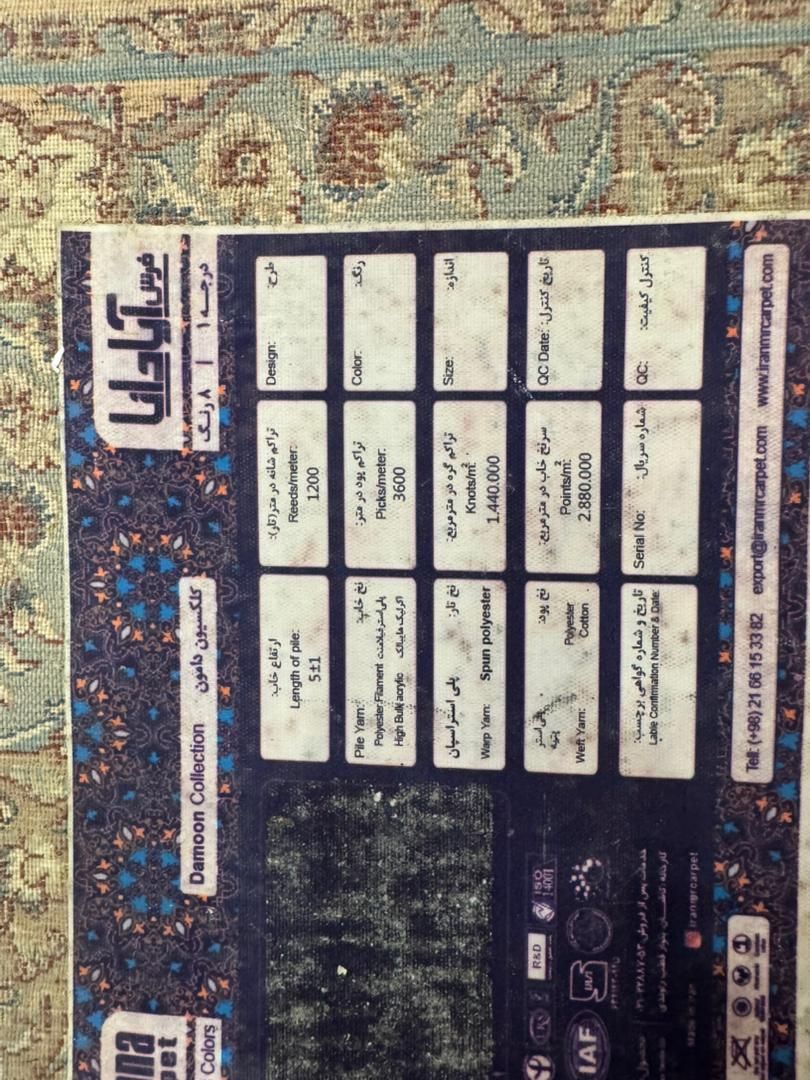 فرش آپادانا
۸ رنگ | درجه ۱
Damoon Collection کلکسیون دامون
Colors
Design: طرح:
Color: رنگ:
Size: اندازه:
QC Date: تاریخ کنترل:
QC: کنترل کیفیت:
تراکم شانه در متر(تار):
Reeds/meter:
1200
تراکم پود در متر:
Picks/meter:
3600
تراکم گره در مترمربع:
Knots/m²:
1.440.000
سرنخ خاب در مترمربع:
Points/m²:
2.880.000
Serial No: شماره سریال:
ارتفاع خاب:
Length of pile:
5±1
Pile Yarn: نخ خاب:
Polyester Filament پلی‌استر فیلامنت
High Bulk acrylic اکرلیک هایبالک
نخ تار: پلی استر اسپان
Warp Yarn: Spun polyester
نخ پود: پلی‌استر
پنبه
Weft Yarn: Polyester
Cotton
تاریخ و شماره گواهی برچسب:
Lable Confirmation Number & Date:
R&D
ISO
14001
IAF
iranmrcarpet
Tell: (+98) 21 66 15 33 82 export@iranmrcarpet.com www.iranmrcarpet.com